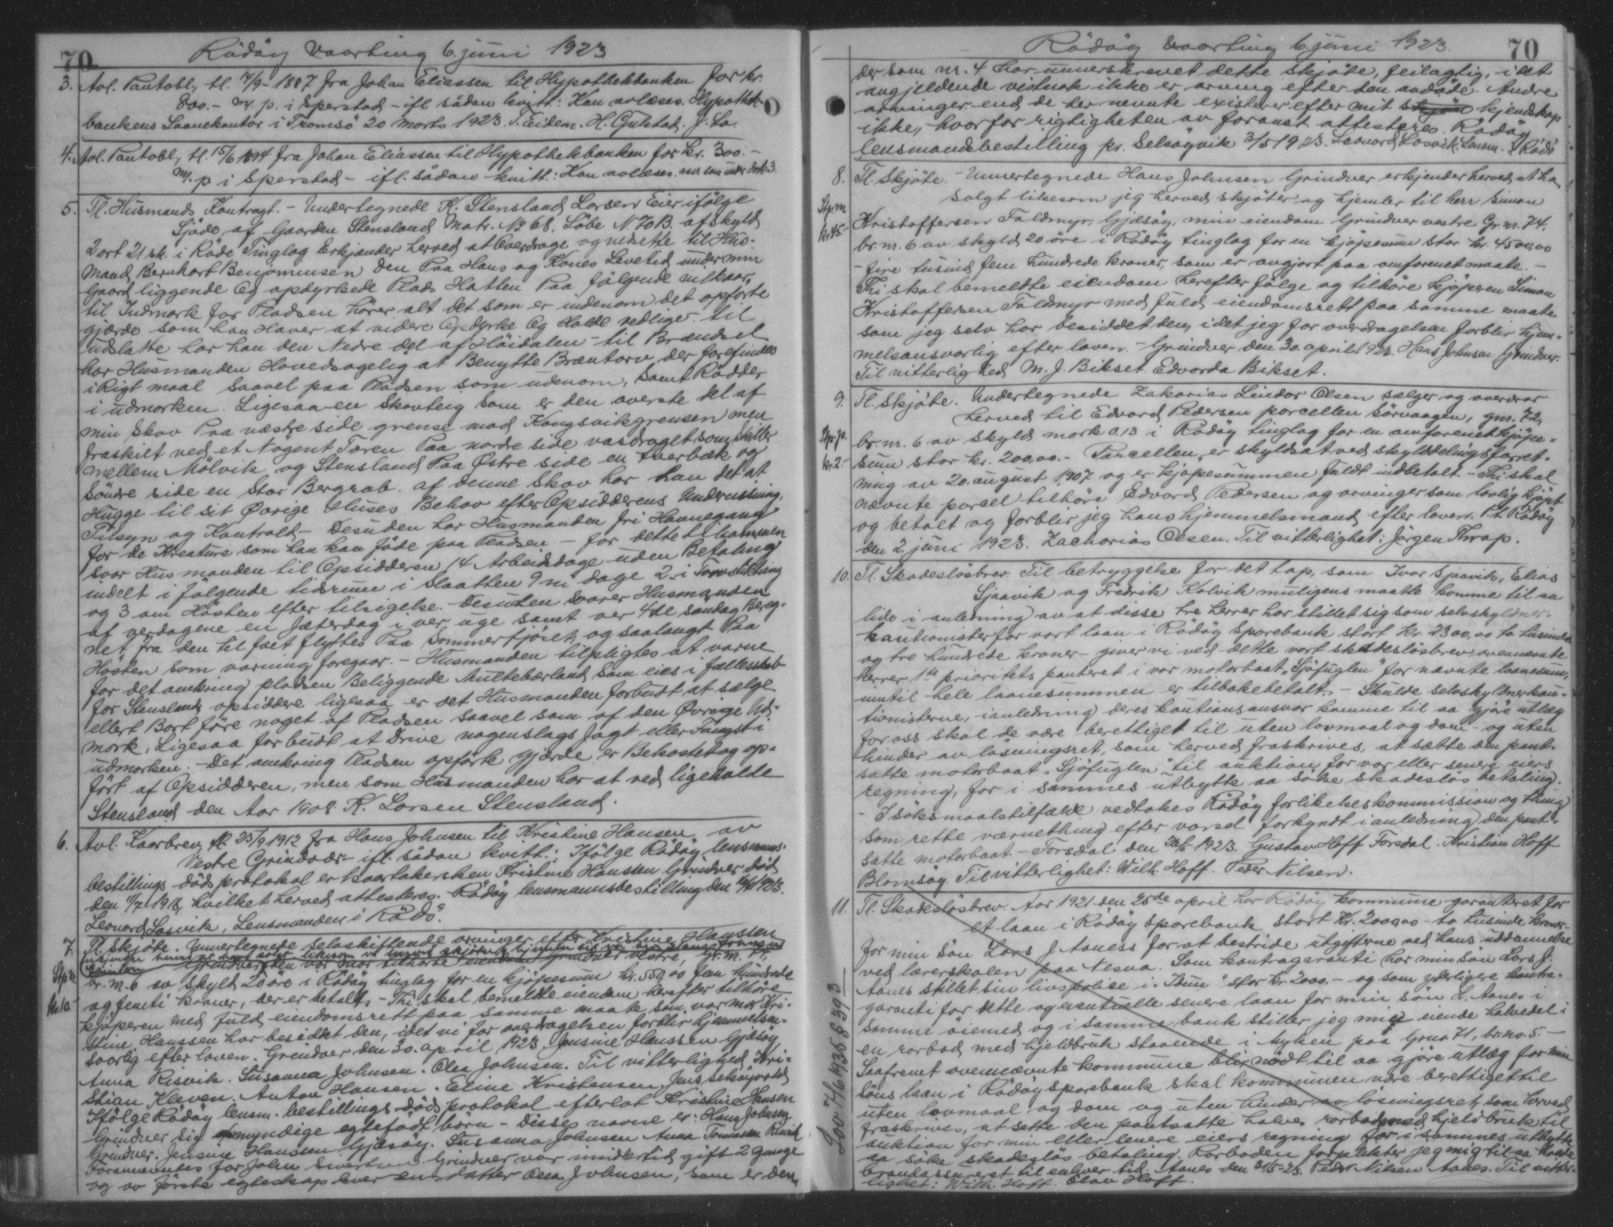 70
Rödöy Vaarting 6 juni 1923
3. Avl. Pantobl. tl. 4/9-1887 fra Johan Eliassen til Hypothekbanken for kr.
800.- m. p. i Sperstad - ifl. sådan kvitt: Kan avlæses. Hypothek-
bankens Laanekontor i Tromsö 20 marts 1923. T. Eidem. H. Gulstad.
4. Avl. Pantobl. tl. 15/6 1894 fra Johan Eliassen til Hypothekbanken for kr. 300.-
m. p i Sperstad - ifl. sådan kvitt: Kan avlæses
5. Tl. Husmands Kontragt. - Undertegnede R. Stensland Larsen Eier ifölge
Sjöde af Gaarden Stensland Matr. No 68, Löbe N 70 B. afskyld
2 ort 21 sk. i Röde Tinglag Erkjender herved at Overdrage og nedsette til Hus-
mand Bernhart Benjominsen den Paa Hans og Kones Levetid under min
Gaard liggende Og opdyrkede Plads Hatten Paa fölgende vilkaar,
til Indmark for Pladsen hörer alt det som er indenom det opförte
gjærde som han Haver at videre Opdyrke Og Holde vedlige til
udslatte har han den Nedre del af Höidalen - til Brændsel
har Husmanden Hovedsagelig at Benytte Bræntorv, der forefindes
i Rigt maal saavel paa Pladsen som udenom, Samt Rödder
i udmarken. Ligesaa en Skovteig som er den överste del af
min Skov Paa væstre side grense mod Kongsvikgrensen men
fraskilt ved et Nögent Tæren Paa nordre side vasdraget som skiller
mellem Molvik og Stensland Paa Østre side en tverbæk og
Söndre side en Stor Bergrab. af denne Skov har han det at
Hugge til sit Övrige Huses Behov efter Opsidderens Undervisning,
Tilsyn og Kontrold - Desuden har Husmanden fri Havnegang
for de Kreature som han kan föde paa Pladsen - for dette tilsammen
svar Husmanden til Opsidderen 14 Arbeidsdage uden Betaling
indelt i fölgende tidsrum i Slaatten 9 ni dage 2 i Torvstikning
og 3 om Hösten efter tilsigelse. Desuten svarer Husmanden
af verdagene en jæterdag i ver uge samt ver 4de Söndag Bereg-
net fra den til fæet flyttes Paa Sommerfjöset og saalangt Paa
Hösten som varning foregaar. - Husmanden tilpligtes at varne
for det omkring pladsen Beliggende Multebærland Som eies i fællesskab
for Stenslands opsiddere ligesaa er det Husmanden forbudt at sælge
ellert Bort före noget af Pladsen saavel som af den Övrige Ud-
mark, Ligesaa forbudt at Drive nogenslags Jagt eller Fangst i
udmarken. - Det omkring Pladsen opförte Gjærde er Bekostet og op-
fört af Opsidderen, men som Husmanden har at vedligeholde
Stensland den Aar 1908 R. Larsen Stensland.
6. Avl. Kaarbrev tl 25/9 1912 fra Hans Johnsen til Kristine Hansen av
Vestre Grindvær - ifl. sådan kvitt: Ifölge Rödöy lensmans-
bestillings dödsprotokol er kaartakersken Kristine Hanssen Grindvær död
den 4/2 1918, hvilket herved attesteres. Rödöy lensmannsbestilling den 1923.
Leonard Losvik, Lensmanden i Rödö.
7. Tl. Skjöte. Undertegnede selvskiftende arvinger efter Kristine Hanssen
br. m. 6 av skyld 20 öre i Rödöy tinglag for en kjöpesum kr. 550,00 fem hundrede
og femti kroner, der er betalt, - Thi skal bemeldte eiendom herefter tilhöre
kjöperen med fuld eiendomsrett paa samme maate som vor mor Kri-
stine Hanssen har besiddet den, idet vi for overdragelsen forblir hjemmelsan-
svarlig efter loven. Grindvær den 30. april 1923 Jensine Hanssen Gjæsöy
Anna Risvik. Susanna Johnsen. Olea Johnsen. Til vitterlighed Kri-
stian Kleven. Anton Hansen. Eline Kristensen
Ifölge Rödöy lensm. bestillings dödsprotokol efterlot Kristine Hansen
Grindvær sig myndige egtefödt barn - disses navne er: Hans Johnsen
Grindvær. Jensine Hanssen Gjæsöy. Susanna Johnsen Anna Tomassen Risvik
Grindvær var imidlertid gift 2 gange
og av förste egteskap lever en datter Olea Johnsen, som er den
70
Rödöy vaarting 6 juni 1923.
der som nr. 4 har underskrevet dette skjöte, feilagtig, idet
angjeldende vistnok ikke er arving efter den avdöde. Andre
arvinger end de her nevnte existerer efter mit kjendskap
ikke, hvorfor rigtigheten av foranst. attesteres. Rödöy
lensmandsbestilling pr. Selsöyvik 3/5 1923. Leonard Losvik, Lensm. i Rödö
8. Tl. Skjöte. - Undertegnede Hans Johnsen Grindvær erkjender herved at ha
solgt likesom jeg herved skjöter og hjemler til herr Simon
Kristoffersen Faldmyr, Gjæsöy, min eiendom Grindvær vestre Gr. nr. 74.
br. nr. 6 av skyld 20 öre i Rödöy tinglag for en kjöpesum stor kr. 4500,00
- fire tusind fem hundrede kroner, som er avgjort paa omforenet maate. -
Thi skal bemeldte eiendom herefter fölge og tilhöre kjöperen Simon
Kristoffersen Faldmyr med fuld eiendomsrett paa samme maate
som jeg selv har besiddet den, idet jeg for overdragelsen forblir hjem-
melsansvarlig efter loven. - Grindvær den 30 april 1923. Hans Johnsen Grindvær.
Til vitterlighed M. J. Bikset Edvarda Bikset.
9. Tl. Skjöte. Undertegnede Zakarias Lindor Olsen sælger og overdrar
herved til Edvard Pedersen parcellen Sörvaagen, gnr. 72,
br. nr. 6 av skyld mark 0,13 i Rödöy tinglag for en omforenet kjöpe-
sum stor kr. 200,00. - Parcellen er skyldsat ved skylddelingsforret-
ning av 20. august 1907 og er kjöpesummen fuldt indbetalt. - Thi skal
nævnte parcel tilhöre Edvard Pedersen og arvinger som lovlig kjöpt
og betalt og forblir jeg hans hjemmelsmand efter loven. Pt. Rödöy
den 2 juni 1923. Zacharias Olsen. Til vitterlighet: Jörgen Thrap.
10. Tl. Skadeslösbrev. Til betryggelse for det tap, som Ivar Sjaavik, Elias
Sjaavik og Fredrik Kolvik muligens maatte komme til aa
lide i anledning av at disse tre herrer har stillet sig som selvskyldner-
kautionister for vort laan i Rödöy sparebank stort kr. 2300,00 to tusinde
og tre hundrede kroner - giver vi ved dette vort skadeslösbrev ovennævnte
herrer 1ste prioritets panteret i vor motorbaat "Sjöfuglen" for nævnte laanesum,
inntil hele laanesummen er tilbakebetalt. - Skulde selvskyldnerkau-
tionisterne, i anledning deres kautionsansvar komme til aa gjöre utlæg
for oss skal de være berettiget til uten lovmaal og dom - og uten
hinder av lösningsret, som herved fraskrives, at sætte den pant-
satte motorbaat "Sjöfuglen" til auktion for vor eller senere eiers
regning, for i sammes utbytte aa söke skadeslös betaling.
- I söksmaalstilfælde vedtakes Rödöy forlikelseskommission og thing
som rette værnething efter varsel forkyndt i anledning den pant-
satte motorbaat - Forsdal den 2/6 1923 Gustav Hoff Forsdal. Kristian Hoff
Blomsöy Til vitterlighet: Wilh. Hoff. Peder Nilsen.
11. Tl. Skadeslösbrev. Aar 1921 den 25de april har Rödöy kommune garanteret for
et laan i Rödöy sparebank stort kr. 2000,00 - to tusinde kroner-
for min sön Lars J. Aaness for at bestride utgifterne ved hans uddannelse
ved lærerskolen paa Nesna. Som kontragaranti har min sön Lars J.
Aanes stillet sin livspolise i "Idun" stor kr. 2000.- og som yderligere kontra-
garanti for dette og eventuelle senere laan for min sön L. Aanes i
samme öiemed og i samme bank stiller jeg mig eiende halvedel i
en rorbod med hjeldbruk staaende i Myken paa Gr.no 71, br.no 5 -
Saafremt ovennævnte kommune blir nödt til aa gjöre utlæg for min
söns laan i Rödöy sparebank skal kommunen være berettiget til
uten lovmaal og dom og uten hinder av lösningsret som herved
fraskrives, at sette den pantsatte halve rorbod med hjeldbruk til
auktion for min eller senere eiers regning for i sammes utbytte
aa söke skadeslös betaling. Rorboden forpligter jeg mig til aa holde
brandassurert til enhver tid. Aanes den 2/5-23. Peder Nilsen Aanes. Til vitter-
lighet: Wilh. Hoff. Olav Hoff.